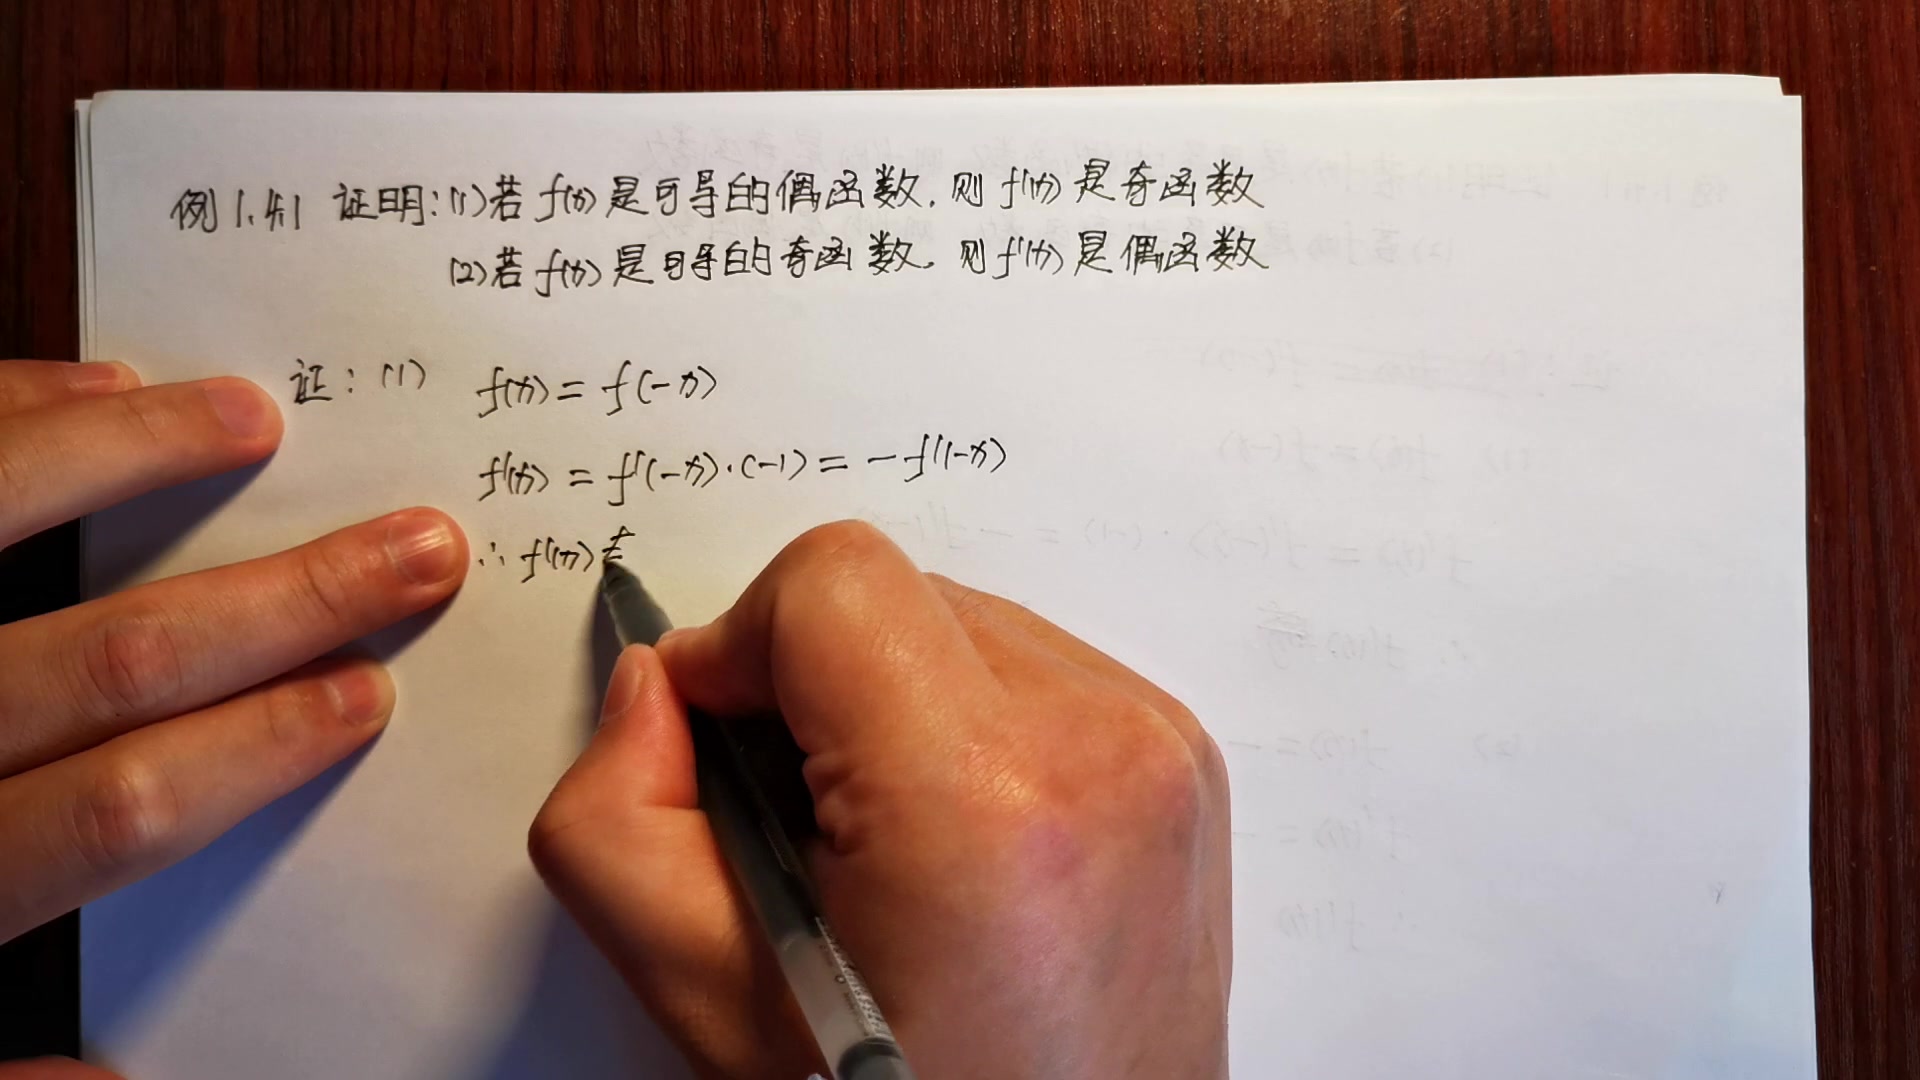 例1.41 证明:(1)若f(x)是可导的偶函数,则f'(x)是奇函数
(2)若f(x)是可导的奇函数,则f'(x)是偶函数
证:(1) f(x)=f(-x)
f'(x)=f'(-x)·(-1)=-f'(-x)
∴f'(x)